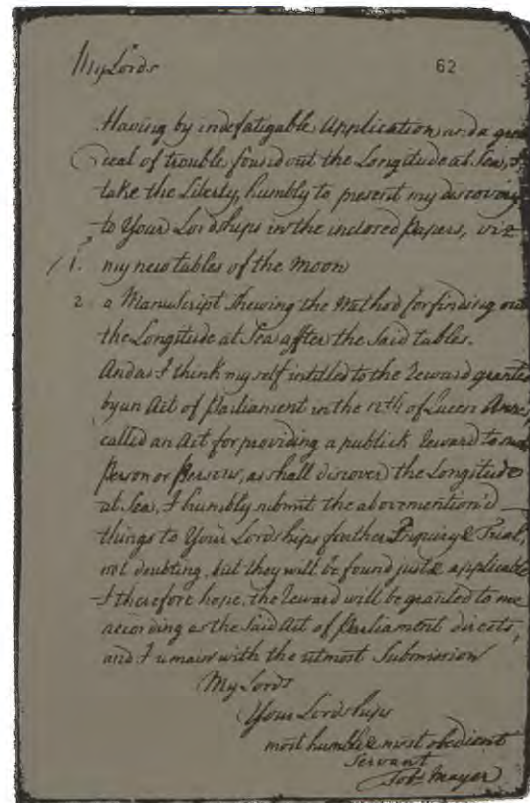 My Lords
62
Having by indefatigable Application and a great
deal of trouble found out the Longitude at Sea, I
take the Liberty, humbly to present my discovery
to Your Lordships in the inclosed Papers, viz
1. my new tables of the Moon
2 a Manuscript shewing the Method for finding out
the Longitude at Sea after the Said tables.
And as I think my self intitled to the Reward granted
by an Act of Parliament in the 12th of Queen Anne,
called an Act for providing a publick Reward to such
Person or Persons, as shall discover the Longitude
at Sea, I humbly submit the abovemention'd
things to Your Lordships further Inquiry & Trial,
not doubting, but they will be found just & applicable
I therefore hope, the Reward will be granted to me
according as the Said Act of Parliament directs,
and I remain with the utmost Submission
My Lords
Your Lordships
most humble & most obedient
Servant
Tob. Mayer